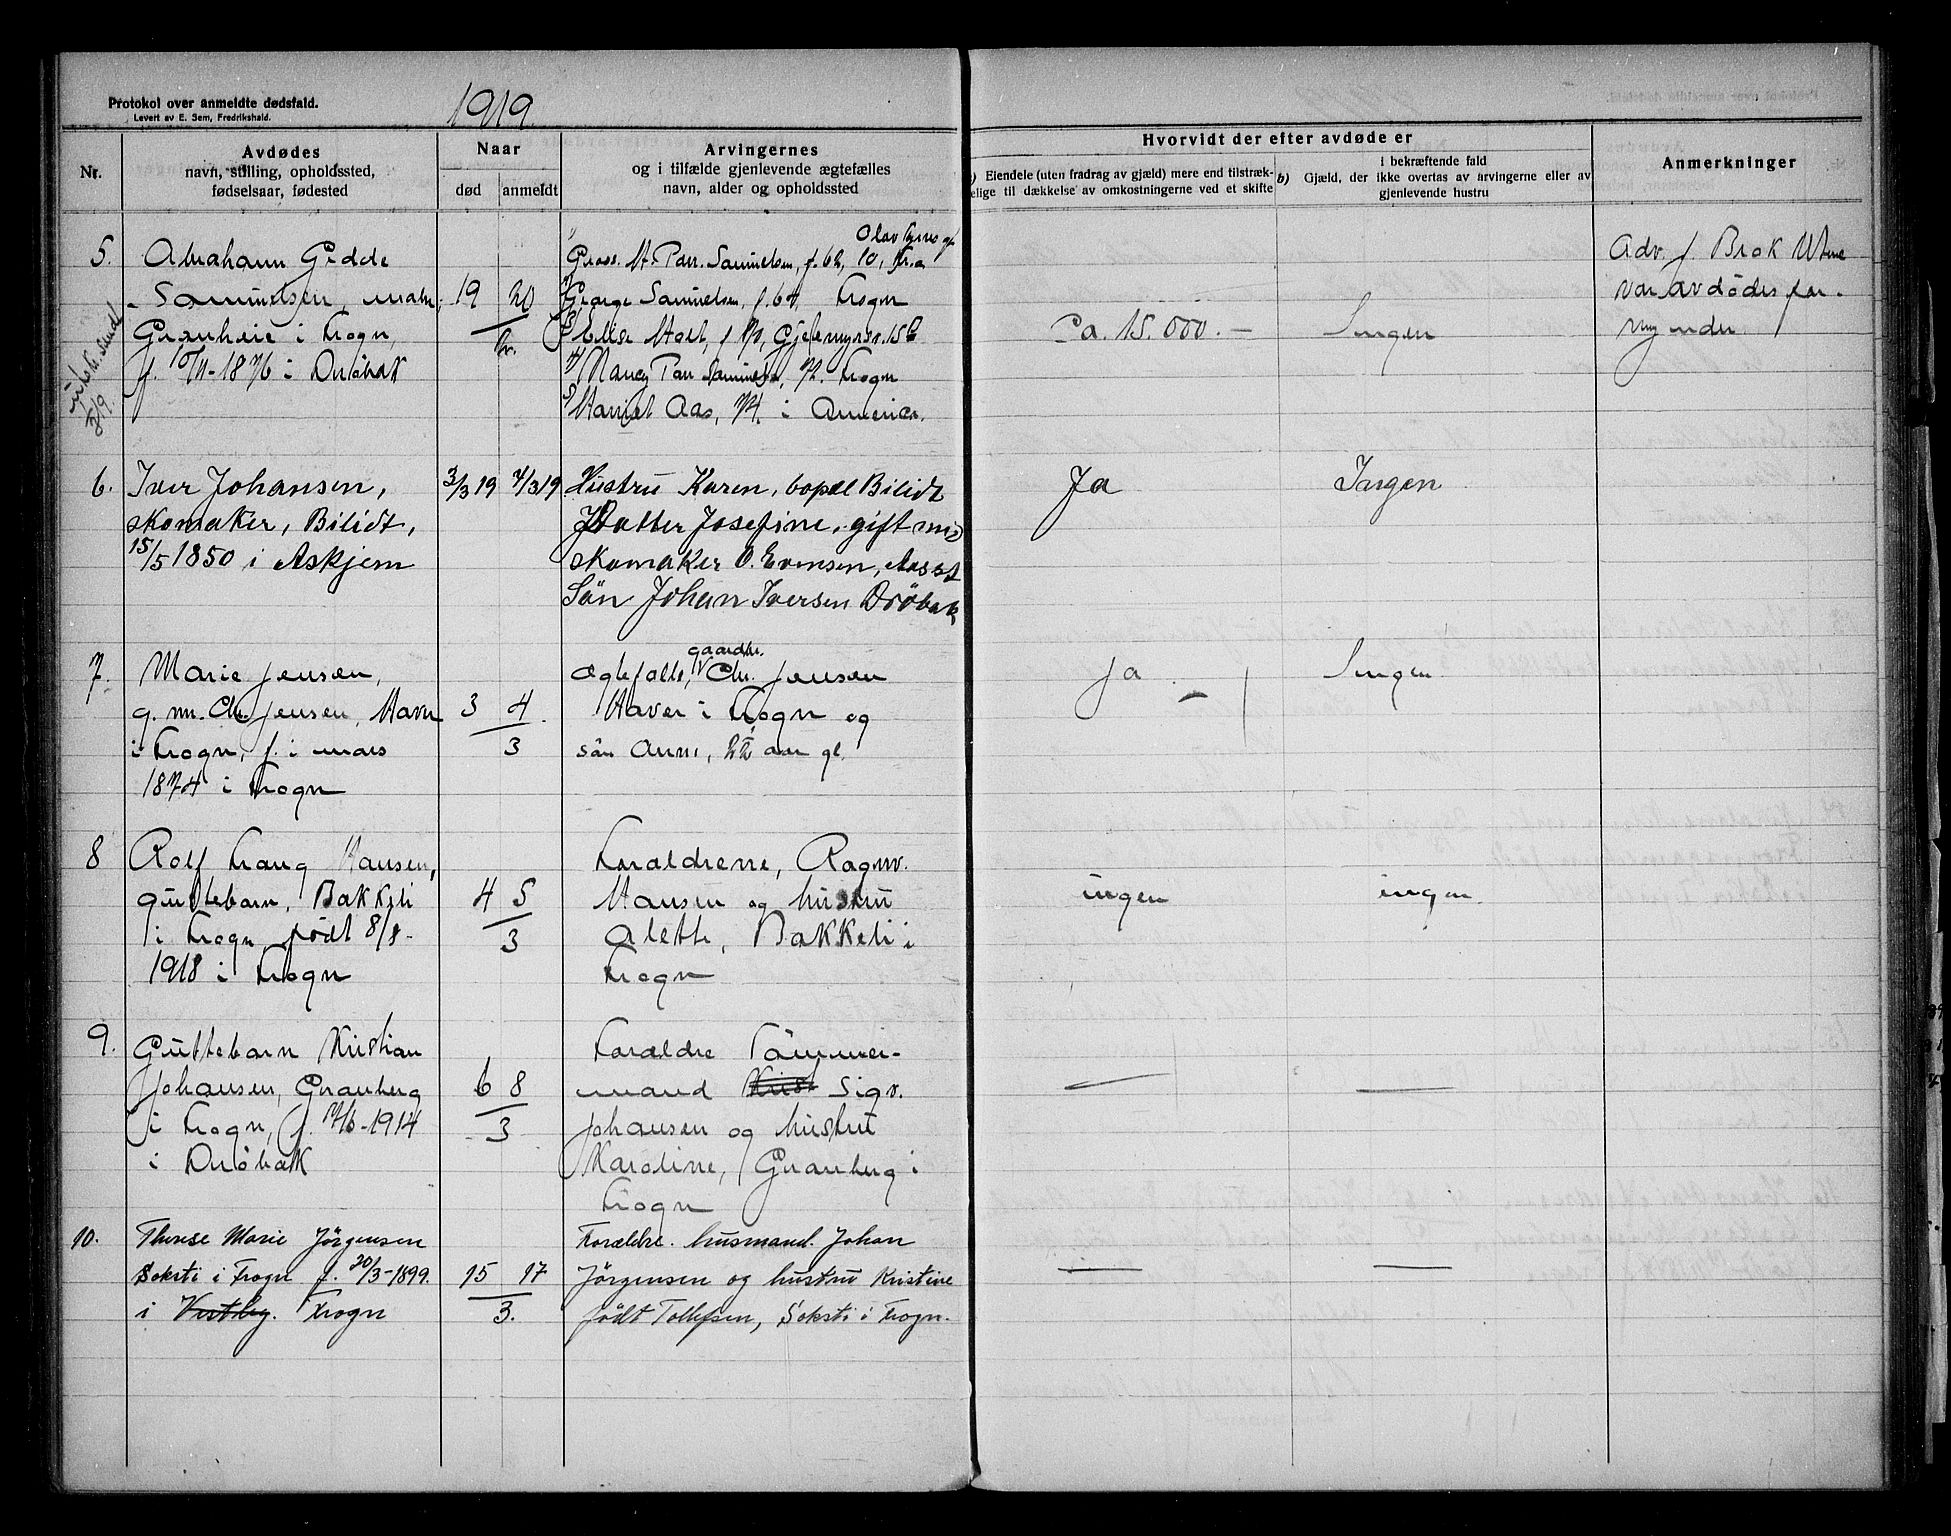 Protokol over anmeldte dødsfald.
Levert av E. Sem, Fredrikshald.
1919.
Nr.
Avdødes
navn, stilling, opholdssted,
fødselsaar, fødested
Naar
død
anmeldt
Arvingernes
og i tilfælde gjenlevende ægtefælles
navn, alder og opholdssted
Hvorvidt der efter avdøde er
Eiendele (uten fradrag av gjæld) mere end tilstræk-
elige til dækkelse av omkostningerne ved et skifte
i bekræftende fald
b) Gjæld, der ikke overtas av arvingerne eller av
gjenlevende hustru
Anmerkninger
5.
Abrahann Gedde
Samuelsen,
Granheie i Frogn,
1876 i Drøbak
19 20
Samuelsen, f. 62, 10, Kr.a
George Samuelsen, f. 64, Frogn
Elise Holt,
Nancy Samuelsen, Frogn
Harriet Aas, 74. i Amerika.
Ca. 15.000.-
Ingen
Adv. f. Brok Utne
var avdødes for-
mynder
6.
Iver Johansen,
skomaker, Bilidt,
15/5 1850 i Askjem
3/3 19
4/3 19
Hustru Karen, bopæl Bilidt
Datter Josefine, gift med
skomaker O. Evensen,
Sön Johan Iversen Dröbak
Ja
Ingen
7.
Marie Jensen,
g. m. Chr. Jensen, Haver
i Frogn, f. i mars
1874 i Frogn
3 4
3
gaardbr.
Ægtefælle, Chr. Jensen
Haver i Frogn og
sön Arne, 22 aar gl.
Ja
Ingen
8
Rolf Traug Hansen,
guttebarn, Bakkeli
i Frogn, født 8/8-
1918 i Frogn
4 5
3
Forældrene, Ragnv.
Hansen og hustru
Alette, Bakkeli i
Frogn
ingen
ingen
9.
Guttebarn Kristian
Johansen, Granberg
i Frogn, f. 7/6-1914
i Drøbak
6 8
3
Forældre Tömmer-
mand Krist Sigv.
Johansen og hustru
Karoline, Granberg i
Frogn
10.
Therese Marie Jørgensen
Soksti i Frogn f. 20/3-1899.
i Vestby. Frogn
15 17
3.
Forældre. husmand. Johan
Jörgensen og hustru Kristine
født Tollefsen, Soksti i Frogn.